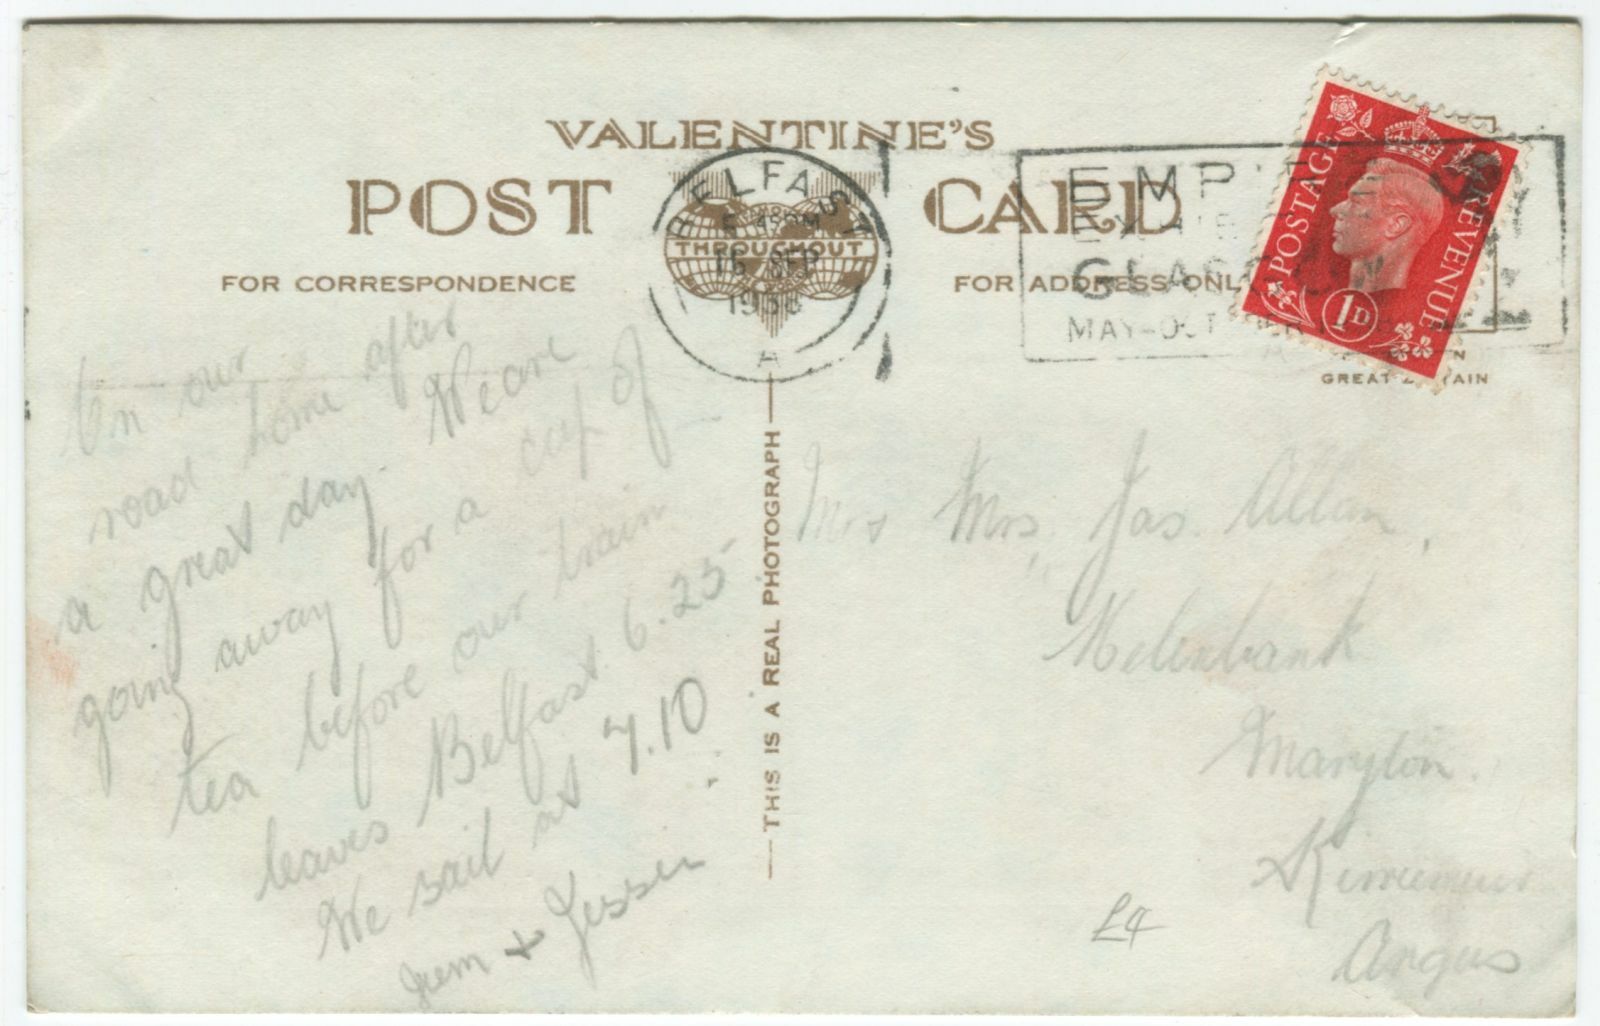 VALENTINE'S
POST CARD
THROUGHOUT
FOR CORRESPONDENCE
FOR ADDRESS ONLY
BELFAST
5 45 PM
16 SEP
1938
A
EMPIRE
GLASGOW
MAY–OCTOBER
POSTAGE REVENUE
1D
GREAT BRITAIN
THIS IS A REAL PHOTOGRAPH
On our
road home after
a great day. We are
going away for a cup of
tea before our train
leaves Belfast 6.25
We sail at 7.10
Jem + Jessie
Mrs Mrs, Jas. Allan,
Maryton.
Kirriemuir
Angus
£4